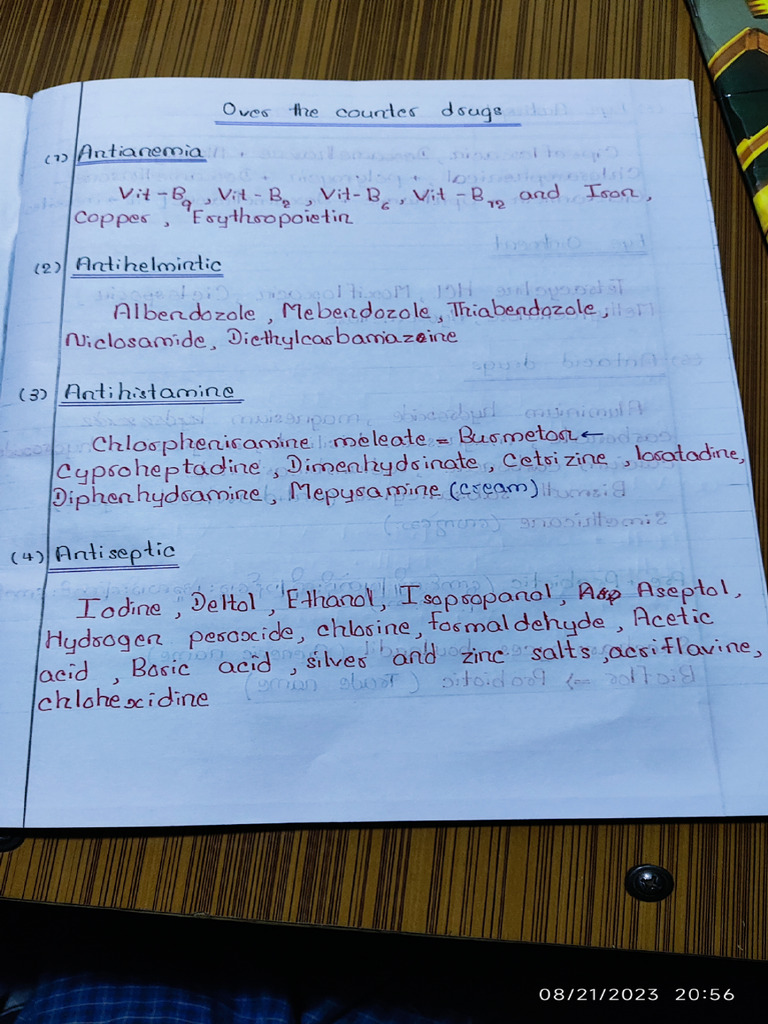 Over the counter drugs
(1) Antianemia
Vit-B9, Vit-B2, Vit-B6, Vit-B12 and Iron,
Copper, Erythropoietin
(2) Antihelmintic
Albendozole, Mebendozole, Thiabendozole,
Niclosamide, Diethylcarbamazeine
(3) Antihistamine
Chlorpheniramine meleate = Burmeton←
Cyproheptadine, Dimenhydrinate, Cetrizine, loratadine,
Diphenhydramine, Mepyramine (cream)
(4) Antiseptic
Iodine, Deltol, Ethanol, Isopropanol, Aseptol,
Hydrogen peroxide, chlorine, formaldehyde, Acetic
acid, Boric acid, silver and zinc salts, acriflavine,
chlohexidine
08/21/2023 20:56